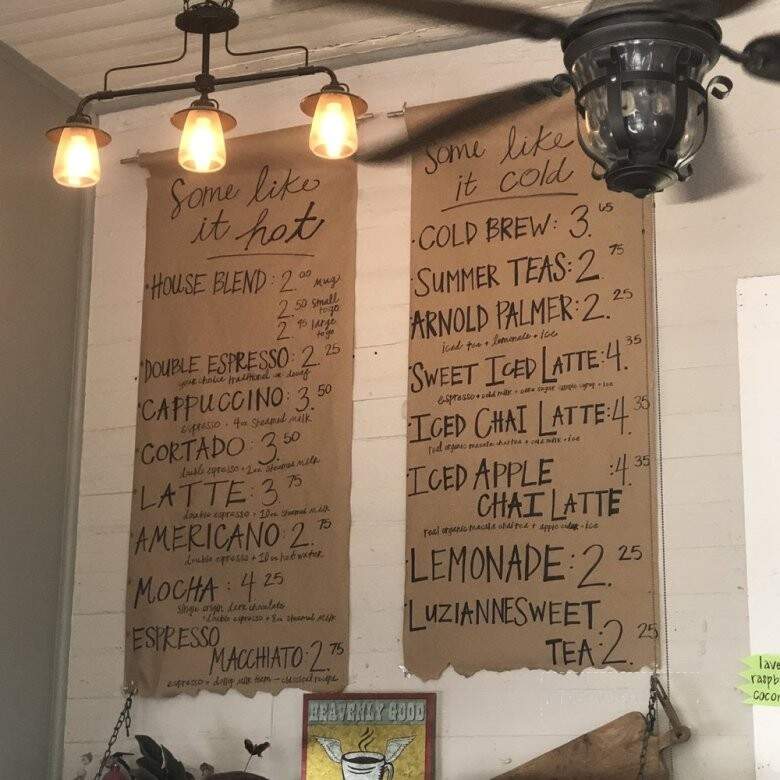 Some like
it hot
HOUSE BLEND: 2.00 Mug
2.50 small to go
2.95 large to go
DOUBLE ESPRESSO: 2.25
your choice traditional or decaf
CAPPUCCINO: 3.50
espresso + 4oz steamed milk
CORTADO: 3.50
double espresso + 2oz steamed milk
LATTE: 3.75
double espresso + 10oz steamed milk
AMERICANO: 2.75
double espresso + 10oz hot water
MOCHA: 4.25
single origin dark chocolate
+ double espresso + 8oz steamed milk
ESPRESSO
MACCHIATO: 2.75
espresso + milk foam - classical recipe
Some like
it cold
COLD BREW: 3.65
SUMMER TEAS: 2.75
ARNOLD PALMER: 2.25
iced tea + lemonade + ice
SWEET ICED LATTE: 4.35
espresso + cold milk + cane sugar simple syrup + ice
ICED CHAI LATTE: 4.35
real organic masala chai tea + cold milk + ice
ICED APPLE :4.35
CHAI LATTE
real organic masala chai tea + apple cider + ice
LEMONADE: 2.25
LUZIANNE SWEET
TEA: 2.25
HEAVENLY GOOD
lave
raspb
cocon